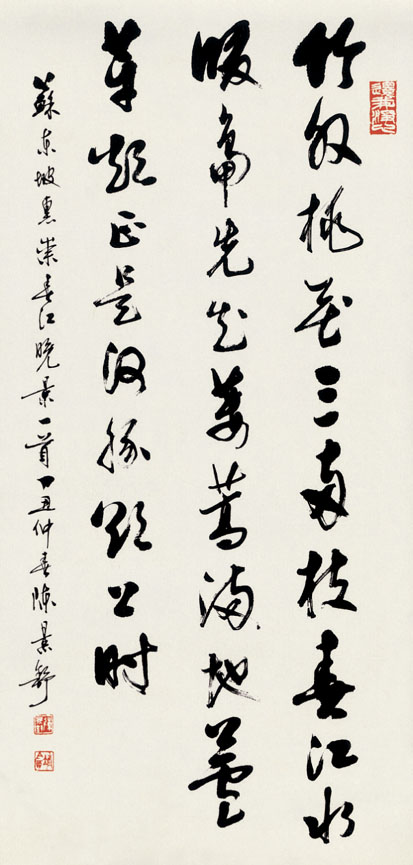 竹外桃花三兩枝春江水
暖鴨先知蔞蒿滿地蘆
芽短正是河豚欲上時
蘇東坡惠崇春江晚景一首丁丑仲春陳景舒